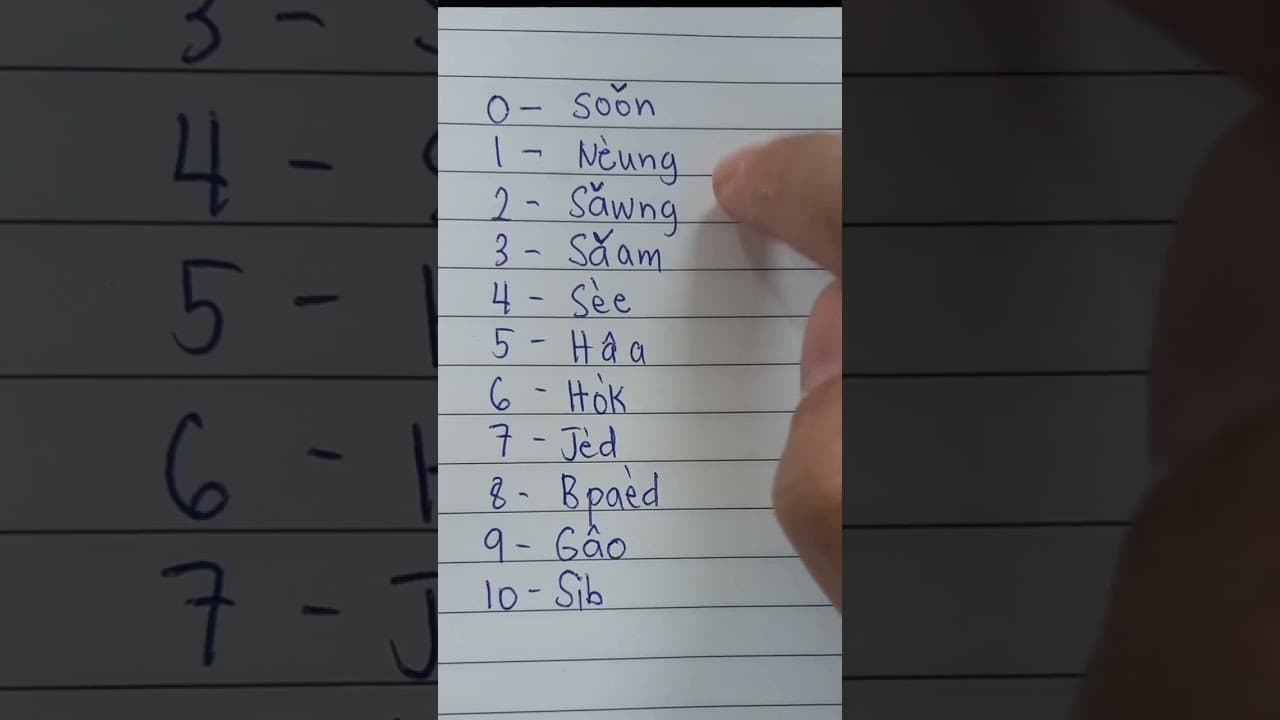 0 - Soǒn
1 - Nèung
2 - Sǎwng
3 - Sǎam
4 - Sèe
5 - Hâa
6 - Hòk
7 - Jèd
8 - Bpaèd
9 - Gâo
10 - Sib